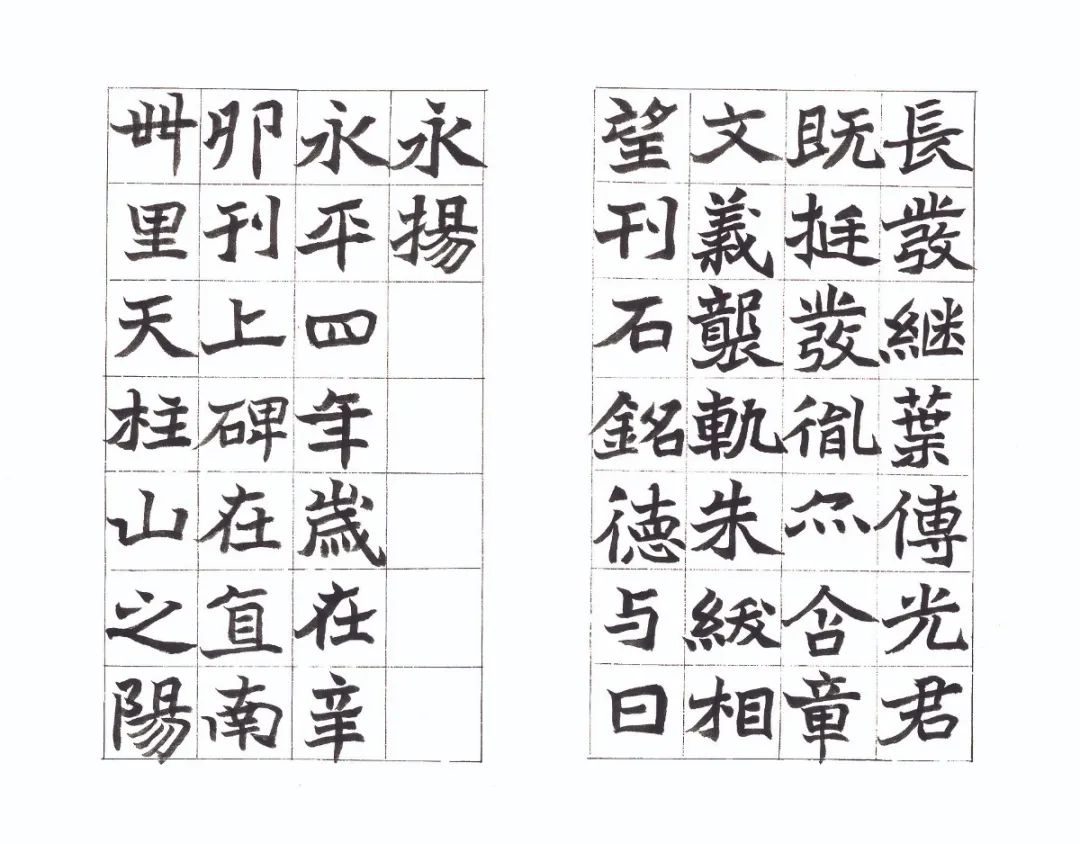 長發継葉傳光君
既挺發胤亦含章
文義襲軌朱紱相
望刊石銘徳与日
永揚
永平四年歳在辛
卯刊上碑在直南
卌里天柱山之陽